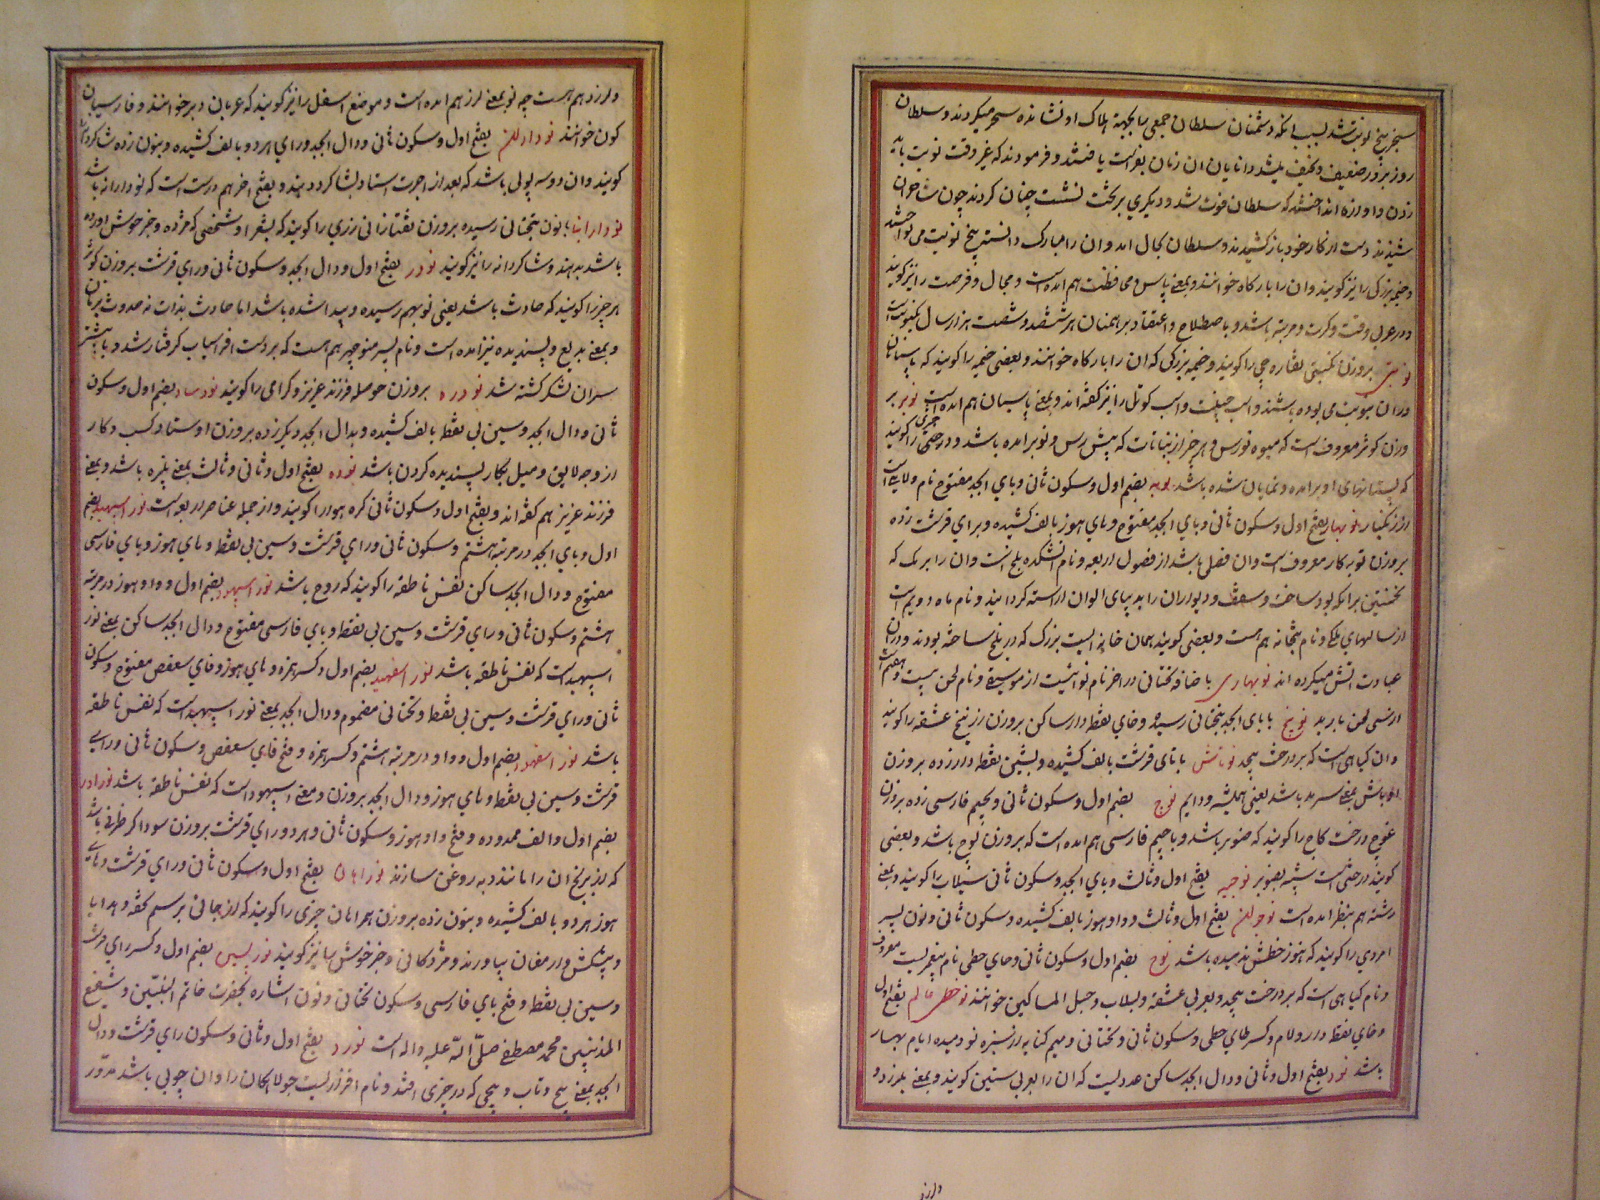 سنجر پنج نوبت شد بسبب انکه دشمنان سلطان جمعی را بجهة هلاک او نشانده سحر میکردند و سلطان
روز بروز ضعیف و نحیف میشد دانایان ان زمان بفراست یافتند و فرمودند که غیر وقت نوبت باید
زدن و اوازه انداختند که سلطان فوت شد و دیکری بر تخت نشست چنان کردند چون ساحران
شنیدند دست از کار خود باز کشیدند و سلطان بحال امد و ان را مبارک دانسته پنج نوبت می نواختند
و خیمه بزرکی را نیز کویند و ان را بارکاه خوانند و بمعنی پاس و محافظت هم امده است و مجال و فرصت را نیز کویند
و در عربی وقت و کرت و مرتبه باشد و باصطلاح و اعتقاد برهمنان هر شصد و شصت هزار سال یکنوبت است
نوبتی بروزن نکبتی نقاره چی را کویند و خیمه بزرکی که ان را بارکاه خوانند و بعضی خیمه را کویند که پاسبانان
دران بنوبت می بوده باشند و اسب جنیبت و اسب کوتل را نیز کفته اند و بمعنی پاسبان هم امده است نوبر بر
وزن کوثر معروف است که میوه نورس و هر چیز از نباتات که پیش رس و نوبر امده باشد و دختری را کویند
که پستانهای او بر امده و نمایان شده باشد نوبه بضم اول و سکون ثانی و بای ابجد مفتوح نام ولایت است
از زنکبار نوبهار بفتح اول و سکون ثانی و بای ابجد مفتوح و های هوز بالف کشیده و برای قرشت زده
بروزن توبه کار معروف است و ان فصلی باشد از فصول اربعه و نام اتشکده بلخ است و ان را برمک که
نخستین برامکه بود ساخت و سقف و دیواران را بدیبای الوان اراسته کردانید و نام ماه دویم است
از سالهای ملکی و نام بتخانه هم هست و بعضی کویند همان خانه ایست بزرک که در بلخ ساخته بودند و دران
عبادت اتش میکرده اند نوبهاری با ضافه تحتانی در اخر نام نوائیست از موسیقی و نام لحن بیست و هفتم است
از سی لحن باربد نوبیخ با بای ابجد بتحتانی رسیده و خای نقطه دار ساکن بروزن زرنیخ عشقه را کویند
و ان کیاهی است که بر درخت پیچد نوتاش با تای قرشت بالف کشیده و بشین نقطه دار زده بروزن
اوباش بمعنی سرمد باشد یعنی همیشه و دایم نوج بضم اول و سکون ثانی و بجیم فارسی زده بروزن
عوج درخت کاج را کویند که صنوبر باشد و با جیم فارسی هم امده است که بروزن لوچ باشد و بعضی
کویند درختی است شبیه بصنوبر نوجبه بفتح اول و ثالث و بای ابجد و سکون ثانی سیلاب را کویند و بمعنی
رشته هم بنظر امده است نوجوان بفتح اول و ثالث و واو هوز بالف کشیده و سکون ثانی و نون پسر
امردی را کویند که هنوز خطش ندمیده باشد نوح بضم اول و سکون ثانی و حای حطی نام پیغمبریست معروف
و نام کیاهی است که بر درخت پیچد و بعربی عشقه و لبلاب و حبل المساکین خوانند نوخط عالم بفتح اول
و خای نقطه دار و لام و کسر طای حطی و سکون ثانی و تحتانی و میم کنایه از سبزه نو دمیده ایام بهار
باشد نود بفتح اول و ثانی و دال ابجد ساکن عددیست که ان را بعربی ستین کویند و بمعنی بلرزد و
ولرزد
ولرزد هم هست چه نو بمعنی لرز هم امده است و موضع اسفل را نیز کویند که عربان دبر خوانند و فارسیان
کون خوانند نوداران بفتح اول و سکون ثانی و دال ابجد و رای هر دو بالف کشیده و بنون زده شاکردانه
کویند و ان دو سه پولی باشد که بعد از اجرت استاد بشاکرد دهند و بفتح اخر هم درست است که نودارانه باشد
نودارانیا بانون بتحتانی رسیده بروزن نقتازانی زری را کویند که بشعرا و شخصی که مژده و خبر خوش اورده
باشد بدهند و شاکردانه را نیز کویند نودر بفتح اول و دال ابجد و سکون ثانی و رای قرشت بروزن کوثر
هر چیز را کویند که حادث باشد یعنی نو بهم رسیده و پیدا شده باشد اما حادث بذات نه حدوث بزمان
و بمعنی بدیع و پسندیده نیز امده است و نام پسر منوچهر هم هست که بر دست افراسیاب کرفتار شد و با بیشتر
سران لشکر کشته شد نودره بروزن حوصله فرزند عزیز و کرامی را کویند نودساد بضم اول و سکون
ثانی و دال ابجد و سین بی نقطه بالف کشیده و بدال ابجد دیکر زده بروزن اوستاد کسب و کار
از وجه لایق و میل بکار پسندیده کردن باشد نوده بفتح اول و ثانی و ثالث بمعنی نبیره باشد و بمعنی
فرزند عزیز هم کفته اند و بفتح اول و سکون ثانی کره هوا را کویند و از جمله عناصر اربعه است نور اسپهبد بضم
اول و بای ابجد در مرتبه هشتم و سکون ثانی و رای قرشت و سین بی نقطه و های هوز و بای فارسی
مفتوح و دال ابجد ساکن نفس ناطقه را کویند که روح باشد نور اسپهود بضم اول و واو هوز در مرتبه
هشتم و سکون ثانی و رای قرشت و سین بی نقطه و بای فارسی مفتوح و دال ابجد ساکن بمعنی نور
اسپهبد است که نفس ناطقه باشد نور اسفهبد بضم اول و کسر همزه و های هوز و فای سعفص مفتوح و سکون
ثانی و رای قرشت و سین بی نقطه و تحتانی مضموم و دال ابجد بمعنی نور اسپهبد است که نفس ناطقه
باشد نور اسفهود بضم اول و واو در مرتبه هشتم و کسر همزه و فتح فای سعفص و سکون ثانی و رای
قرشت و سین بی نقطه و های هوز و دال ابجد بروزن و معنی اسپهود است که نفس ناطقه باشد نورادر
بضم اول و الف ممدوده و فتح واو هوز و سکون ثانی و هر دو رای قرشت بروزن سوداکر ظرفی باشد
که زیر یخدان را مانند و به روغن سازند نوراهان بفتح اول و سکون ثانی و رای قرشت و های
هوز هر دو بالف کشیده و بنون زده بروزن همراهان چیزی را کویند که از جائی برسم تحفه و هدایا
و پیشکش و ارمغان بیاورند و مژدکانی و خبر خوش را نیز کویند نور پسین بضم اول و کسر رای قرشت
و سین بی نقطه و فتح بای فارسی و سکون تحتانی و نون اشاره بحضرت خاتم النبیین و شفیع
المذنبین محمد مصطفی صلی الله علیه و اله است نورد بفتح اول و ثانی و سکون رای قرشت و دال
ابجد بمعنی پیچ و تاب و پیچی که در چیزی افتد و نام افزاریست جولاهکان را و ان چوبی باشد مدور